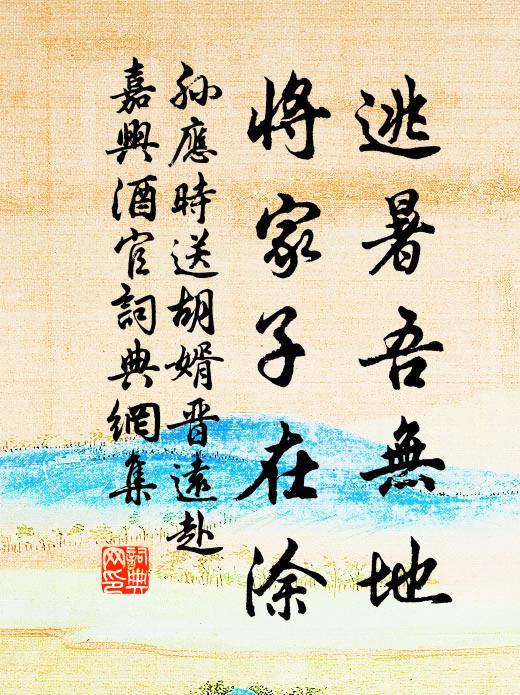 逃暑吾無地
將家子在涂
孙應時送胡婿晋遠赴
嘉興酒官詞典網集
詞典
网印